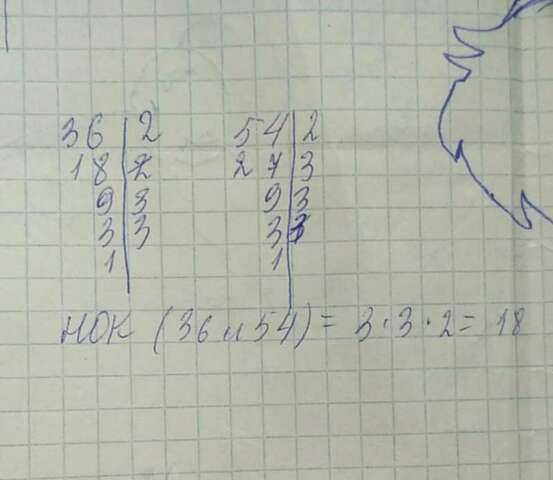 36 | 2 54 | 2
18 | 2 27 | 3
9 | 3 9 | 3
3 | 3 3 | 3
1 | 1 |
НОК (36 и 54) = 3·3·2 = 18